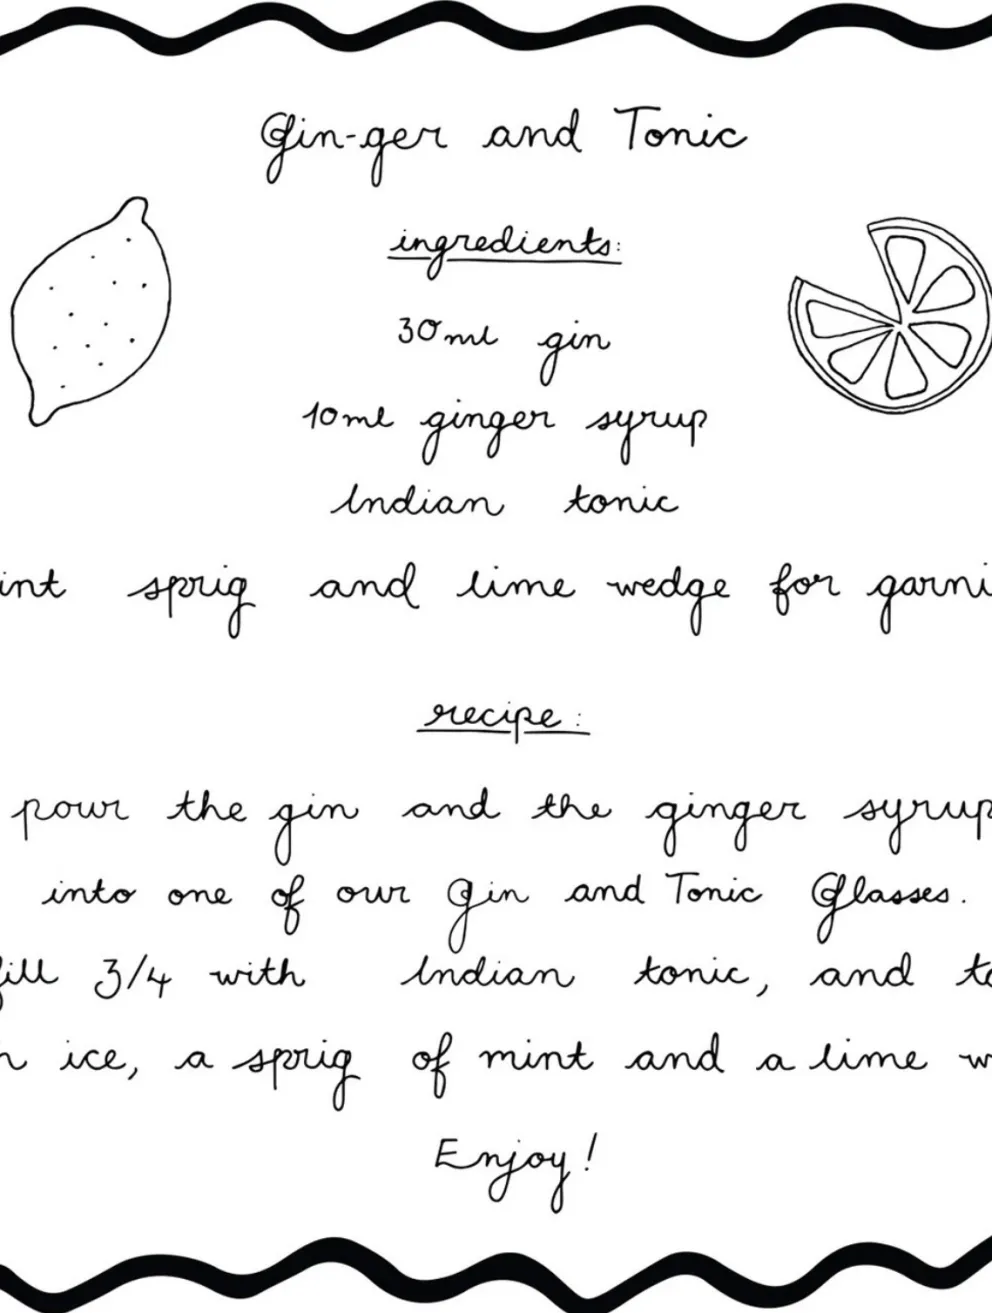 Gin-ger and Tonic
ingredients:
30ml gin
10ml ginger syrup
Indian tonic
int sprig and lime wedge for garni
recipe:
pour the gin and the ginger syrup
into one of our Gin and Tonic Glasses.
fill 3/4 with Indian tonic, and to
h ice, a sprig of mint and a lime w
Enjoy!